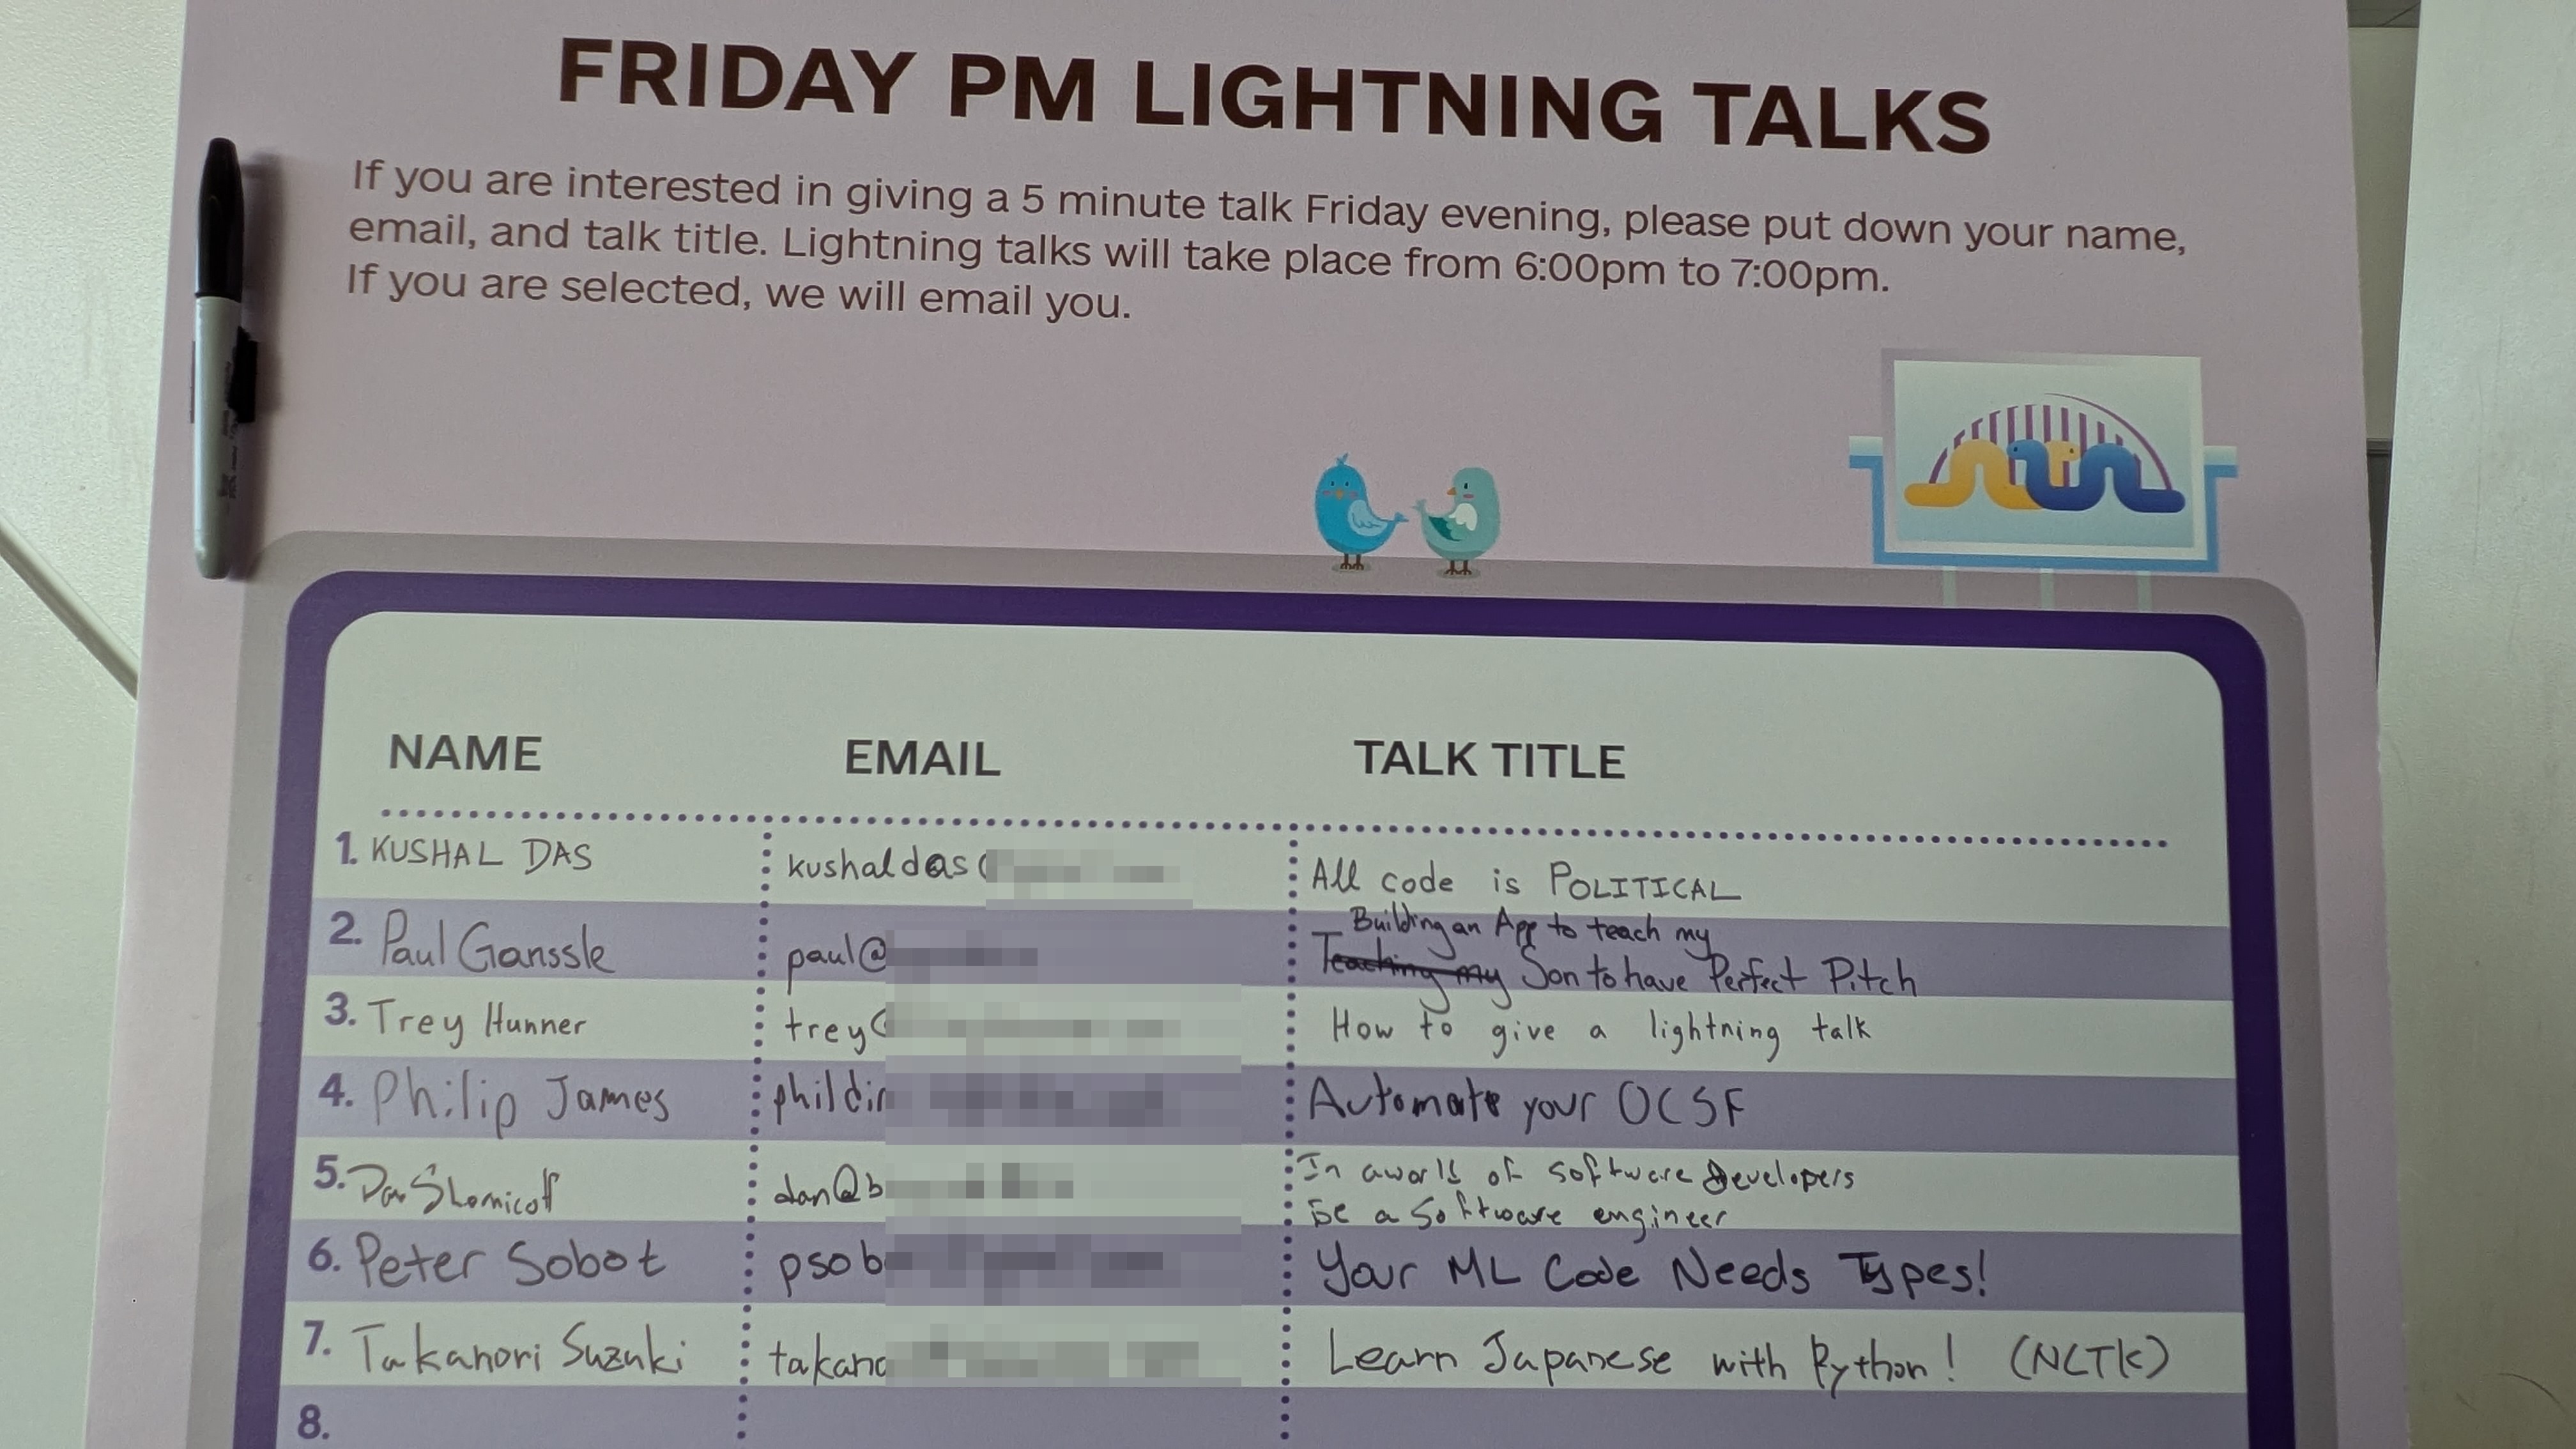 FRIDAY PM LIGHTNING TALKS
If you are interested in giving a 5 minute talk Friday evening, please put down your name,
email, and talk title. Lightning talks will take place from 6:00pm to 7:00pm.
If you are selected, we will email you.
NAME EMAIL TALK TITLE
1. KUSHAL DAS kushaldas All code is POLITICAL
Building an App to teach my
2. Paul Ganssle paul@ Teaching my Son to have Perfect Pitch
3. Trey Hunner trey@ How to give a lightning talk
4. Philip James phildin Automate your OCSF
5. Dan Shernicoff dan@b In a world of software Developers
be a software engineer
6. Peter Sobot psob Your ML Code Needs Types!
7. Takanori Suzuki takano Learn Japanese with Python! (NLTK)
8.